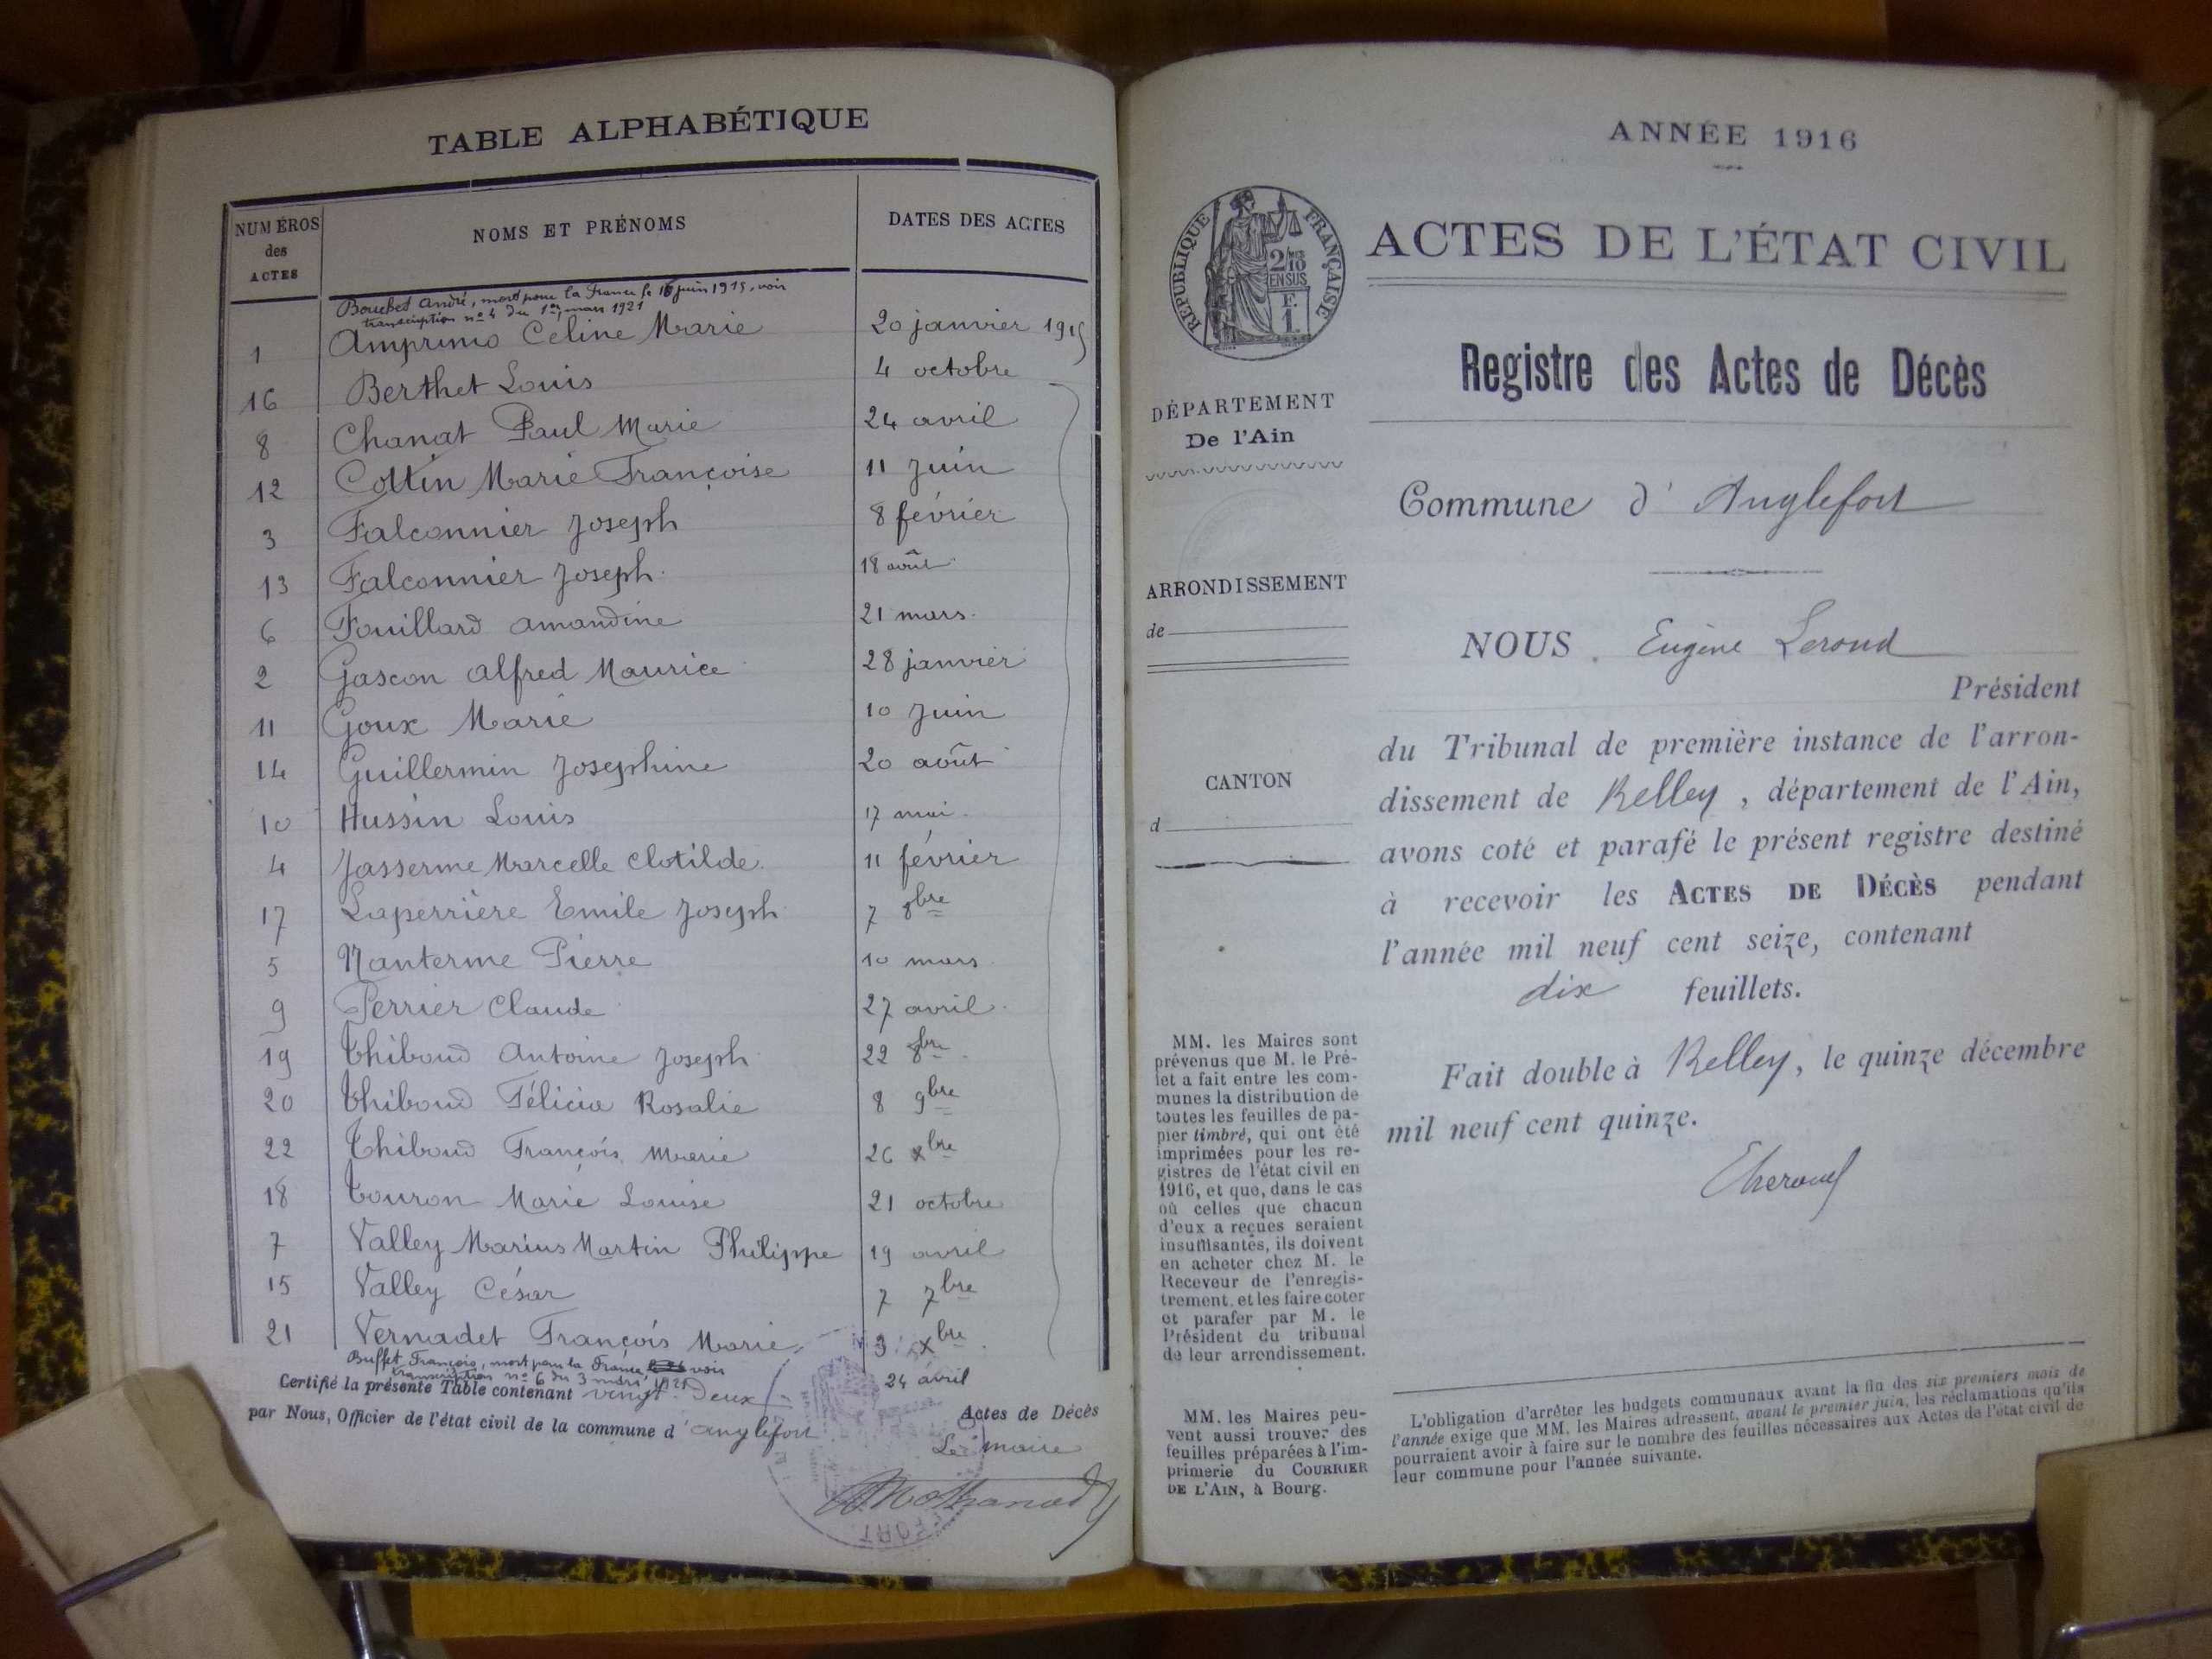 TABLE ALPHABÉTIQUE
NUMÉROS des ACTES NOMS ET PRÉNOMS DATES DES ACTES
Bouchet André, mort pour la France le 16 juin 1915, voir
transcription nº 4 du 1er mars 1921
1 Amprimo Celine Marie 20 janvier 1915
16 Berthet Louis 4 octobre
8 Chanat Paul Marie 24 avril
12 Cottin Marie Françoise 11 Juin
3 Falconnier Joseph 8 février
13 Falconnier Joseph 18 août
6 Fouillard Amandine 21 mars
2 Gascon Alfred Maurice 28 janvier
11 Goux Marie 10 Juin
14 Guillermin Josephine 20 août
10 Hussin Louis 17 mai
4 Jasserme Marcelle Clotilde 11 février
17 Laperrière Emile Joseph 7 8bre
5 Nanterme Pierre 10 mars
9 Perrier Claude 27 avril
19 Thiboud Antoine Joseph 22 8bre
20 Thiboud Félicie Rosalie 8 9bre
22 Thiboud François Marie 26 xbre
18 Touron Marie Louise 21 octobre
7 Valley Marius Martin Philippe 19 avril
15 Valley César 7 7bre
21 Vernadet François Marie 3 xbre
Buffet François, mort pour la France voir
transcription nº 6 du 3 mars 1921 24 avril
Certifié la présente Table contenant vingt Deux Actes de Décès
par Nous, Officier de l'état civil de la commune d'Anglefort
Le maire
ANNÉE 1916
RÉPUBLIQUE FRANÇAISE
2/10
EN SUS
F.
1.
ACTES DE L'ÉTAT CIVIL
Registre des Actes de Décès
DÉPARTEMENT
De l'Ain
Commune d'Anglefort
ARRONDISSEMENT
de
CANTON
d
NOUS Eugène Leroud
Président
du Tribunal de première instance de l'arron-
dissement de Belley, département de l'Ain,
avons coté et parafé le présent registre destiné
à recevoir les ACTES DE DÉCÈS pendant
l'année mil neuf cent seize, contenant
dix feuillets.
Fait double à Belley, le quinze décembre
mil neuf cent quinze.
MM. les Maires sont
prévenus que M. le Pré-
fet a fait entre les com-
munes la distribution de
toutes les feuilles de pa-
pier timbré, qui ont été
imprimées pour les re-
gistres de l'état civil en
1916, et que, dans le cas
où celles que chacun
d'eux a reçues seraient
insuffisantes, ils doivent
en acheter chez M. le
Receveur de l'enregis-
trement, et les faire coter
et parafer par M. le
Président du tribunal
de leur arrondissement.
MM. les Maires peu-
vent aussi trouver des
feuilles préparées à l'im-
primerie du COURRIER
DE L'AIN, à Bourg.
L'obligation d'arrêter les budgets communaux avant la fin des six premiers mois de
l'année exige que MM. les Maires adressent, avant le premier juin, les réclamations qu'ils
pourraient avoir à faire sur le nombre des feuilles nécessaires aux Actes de l'état civil de
leur commune pour l'année suivante.